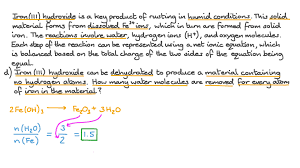 Iron(III) hydroxide is a key product of rusting in humid conditions. This solid
material forms from dissolved Fe³⁺ ions, which in turn are formed from solid
iron. The reactions involve water, hydrogen ions (H⁺), and oxygen molecules.
Each step of the reaction can be represented using a net ionic equation, which
is balanced based on the total charge of the two sides of the equation being
equal.
d) Iron (III) hydroxide can be dehydrated to produce a material containing
no hydrogen atoms. How many water molecules are removed for every atom
of iron in the material?
2Fe(OH)₃ → Fe₂O₃ + 3H₂O
n(H₂O) / n(Fe) = 3/2 = 1.5